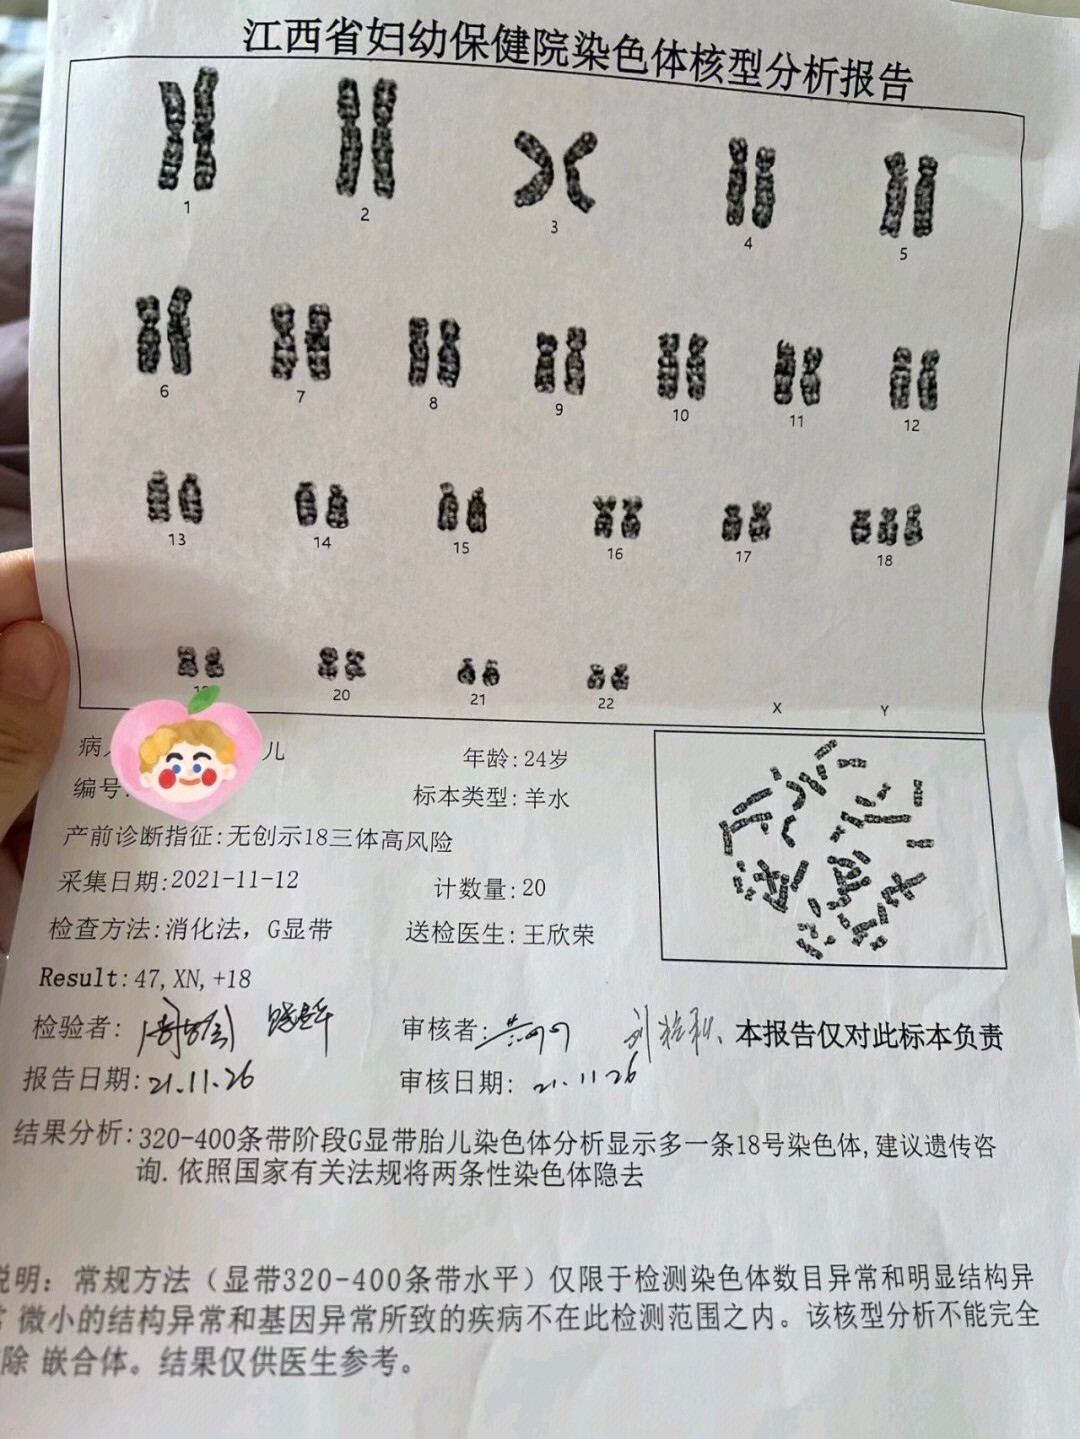 江西省妇幼保健院染色体核型分析报告
1 2 3 4 5
6 7 8 9 10 11 12
13 14 15 16 17 18
20 21 22 X Y
病 儿 年龄:24岁
编号: 标本类型:羊水
产前诊断指征:无创示18三体高风险
采集日期:2021-11-12 计数量:20
检查方法:消化法，G显带 送检医生:王欣荣
Result:47,XN,+18
检验者: 审核者: 本报告仅对此标本负责
报告日期:21.11.26 审核日期: 21.11.26
结果分析:320-400条带阶段G显带胎儿染色体分析显示多一条18号染色体,建议遗传咨
询.依照国家有关法规将两条性染色体隐去
说明：常规方法（显带320-400条带水平）仅限于检测染色体数目异常和明显结构异
常 微小的结构异常和基因异常所致的疾病不在此检测范围之内。该核型分析不能完全
除 嵌合体。结果仅供医生参考。